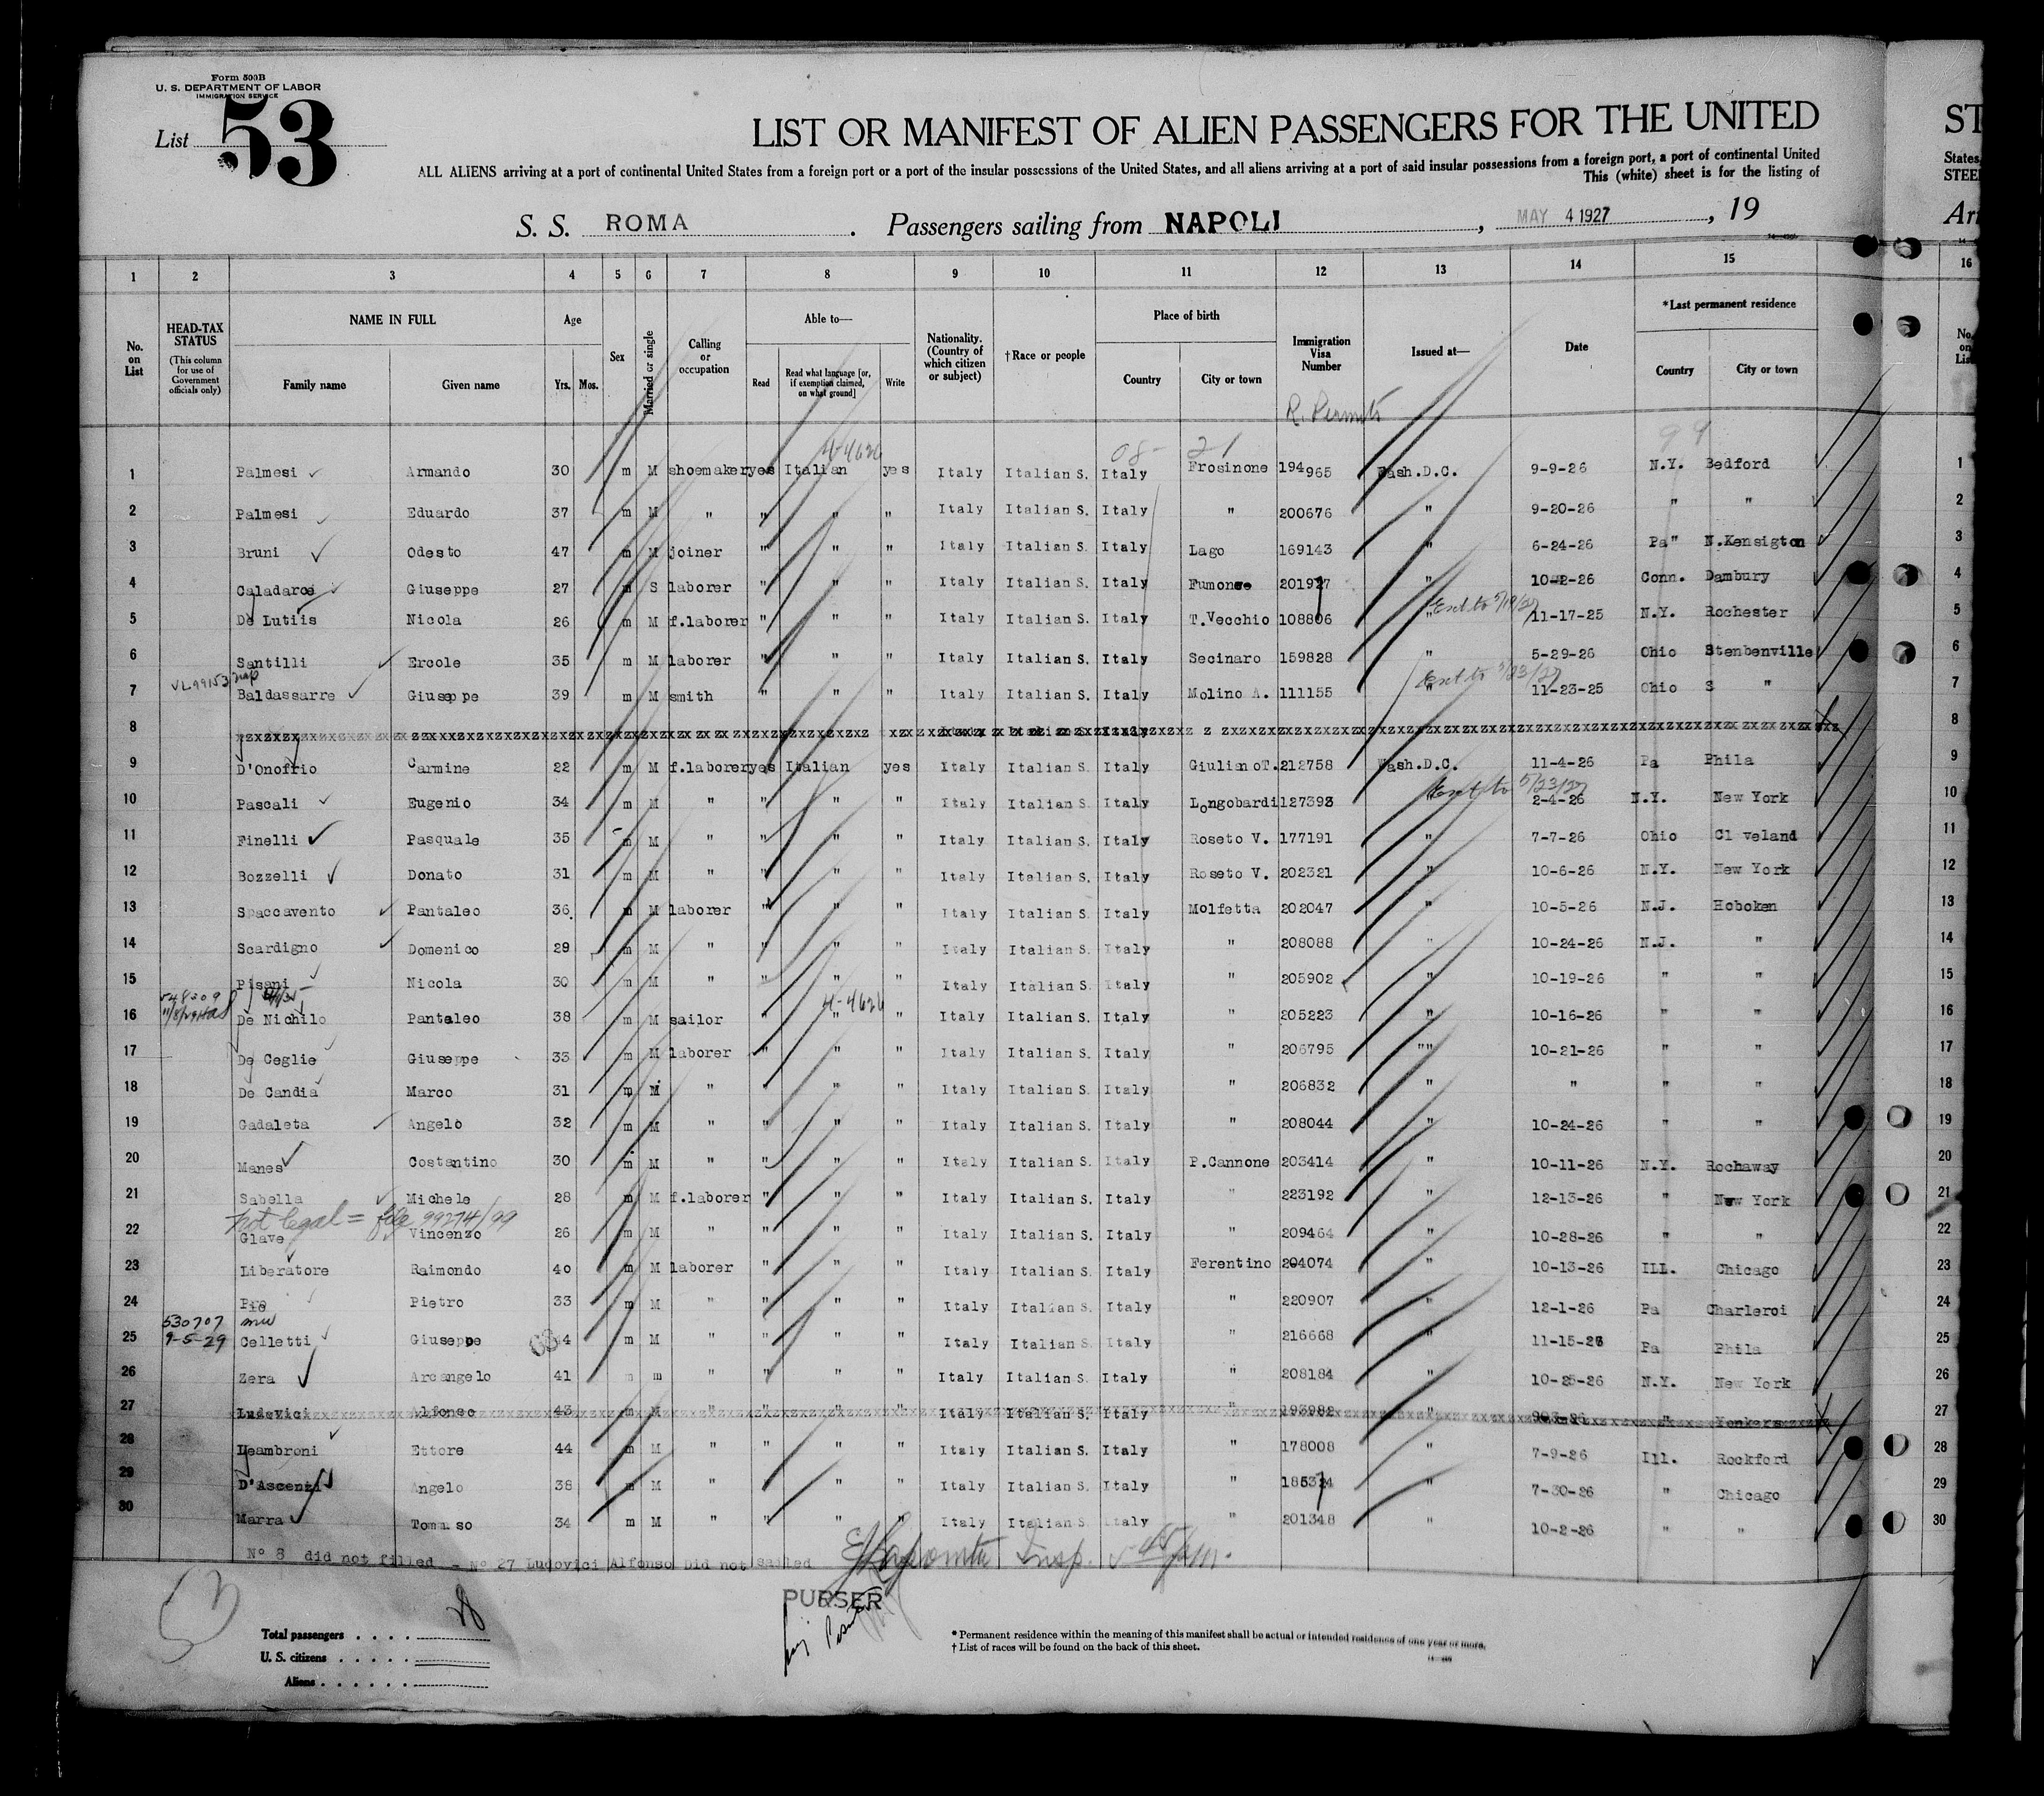 Form 500B
U. S. DEPARTMENT OF LABOR
IMMIGRATION SERVICE
List 53
LIST OR MANIFEST OF ALIEN PASSENGERS FOR THE UNITED
ST
ALL ALIENS arriving at a port of continental United States from a foreign port or a port of the insular possessions of the United States, and all aliens arriving at a port of said insular possessions from a foreign port, a port of continental United
States,
This (white) sheet is for the listing of
STEE
S. S. ROMA . Passengers sailing from NAPOLI , MAY 4 1927 , 19
Arr
1 2 3 4 5 6 7 8 9 10 11 12 13 14 15 16
No. on List
HEAD-TAX STATUS (This column for use of Government officials only)
NAME IN FULL Family name Given name
Age Yrs. Mos.
Sex
Married or single
Calling or occupation
Able to— Read Read what language [or, if exemption claimed, on what ground] Write
Nationality. (Country of which citizen or subject)
†Race or people
Place of birth Country City or town
Immigration Visa Number
Issued at—
Date
*Last permanent residence Country City or town
No. on List
R. Permits
4-4626 08- 21 99
1 Palmesi Armando 30 m M shoemaker yes Italian yes Italy Italian S. Italy Frosinone 194965 Wash.D.C. 9-9-26 N.Y. Bedford 1
2 Palmesi Eduardo 37 m M " " " " Italy Italian S. Italy " 200676 " 9-20-26 " " 2
3 Bruni Odesto 47 m M joiner " " " Italy Italian S. Italy Lago 169143 " 6-24-26 Pa" N.Kensigton 3
4 Caladarce Giuseppe 27 m S laborer " " " Italy Italian S. Italy Fumone 201927 " 10-2-26 Conn. Dambury 4
Ext to 5/19/27
5 De Lutiis Nicola 26 m M f.laborer " " " Italy Italian S. Italy T.Vecchio 108806 " 11-17-25 N.Y. Rochester 5
6 Santilli Ercole 35 m M laborer " " " Italy Italian S. Italy Secinaro 159828 " 5-29-26 Ohio Stenbenville 6
Ext to 5/23/27
7 Baldassarre Giuseppe 39 m M smith " " " Italy Italian S. Italy Molino A. 111155 " 11-23-25 Ohio S " 7
8 8
9 D'Onofrio Carmine 22 m M f.laborer yes Italian yes Italy Italian S. Italy GiulianoT. 212758 Wash.D.C. 11-4-26 Pa Phila 9
Ext to 5/23/27
10 Pascali Eugenio 34 m M " " " " Italy Italian S. Italy Longobardi 127393 2-4-26 N.Y. New York 10
11 Finelli Pasquale 35 m M " " " " Italy Italian S. Italy Roseto V. 177191 " 7-7-26 Ohio Cl veland 11
12 Bozzelli Donato 31 m M " " " " Italy Italian S. Italy Roseto V. 202321 " 10-6-26 N.Y. New York 12
13 Spaccavento Pantaleo 36 m M laborer " " " Italy Italian S. Italy Molfetta 202047 " 10-5-26 N.J. Hoboken 13
14 Scardigno Domenico 29 m M " " " " Italy Italian S. Italy " 208088 " 10-24-26 N.J. " 14
15 Pisani Nicola 30 m M " " " " Italy Italian S. Italy " 205902 " 10-19-26 " " 15
548209 4-4626
16 De Nichilo Pantaleo 38 m M sailor " " " Italy Italian S. Italy " 205223 " 10-16-26 " " 16
17 De Ceglie Giuseppe 33 m M laborer " " " Italy Italian S. Italy " 206795 "" 10-21-26 " " 17
18 De Candia Marco 31 m M " " " " Italy Italian S. Italy " 206832 " " " " 18
19 Gadaleta Angelo 32 m M " " " " Italy Italian S. Italy " 208044 " 10-24-26 " " 19
20 Manes Costantino 30 m M " " " " Italy Italian S. Italy P.Cannone 203414 " 10-11-26 N.Y. Rochaway 20
21 Sabella Michele 28 m M f.laborer " " " Italy Italian S. Italy " 223192 " 12-13-26 " New York 21
not legal = file 99274/99
22 Glave Vincenzo 26 m M " " " " Italy Italian S. Italy " 209464 " 10-28-26 " " 22
23 Liberatore Raimondo 40 m M laborer " " " Italy Italian S. Italy Ferentino 204074 " 10-13-26 ILL. Chicago 23
24 Pro Pietro 33 m M " " " " Italy Italian S. Italy " 220907 " 12-1-26 Pa Charleroi 24
530707
9-5-29
25 Celletti Giuseppe 4 m M " " " " Italy Italian S. Italy " 216668 " 11-15-26 Pa Phila 25
26 Zera Arcangelo 41 m m " " " " Italy Italian S. Italy " 208184 " 10-25-26 N.Y. New York 26
27 Ludovici Alfonso 43 m M " " " " Italy Italian S. Italy " 193982 " " Yonkers 27
28 Leambroni Ettore 44 m M " " " " Italy Italian S. Italy " 178008 " 7-9-26 Ill. Rockford 28
29 D'Ascenzi Angelo 38 m M " " " " Italy Italian S. Italy " 185324 " 7-30-26 " Chicago 29
30 Marra Tomaso 34 m M " " " " Italy Italian S. Italy " 201348 " 10-2-26 " " 30
No 8 did not filled - No 27 Ludovici Alfonso Did not sailed
Insp.
PURSER
53
Total passengers . . . . 28
U. S. citizens . . . . .
Aliens . . . . . .
* Permanent residence within the meaning of this manifest shall be actual or intended residence of one year or more.
† List of races will be found on the back of this sheet.